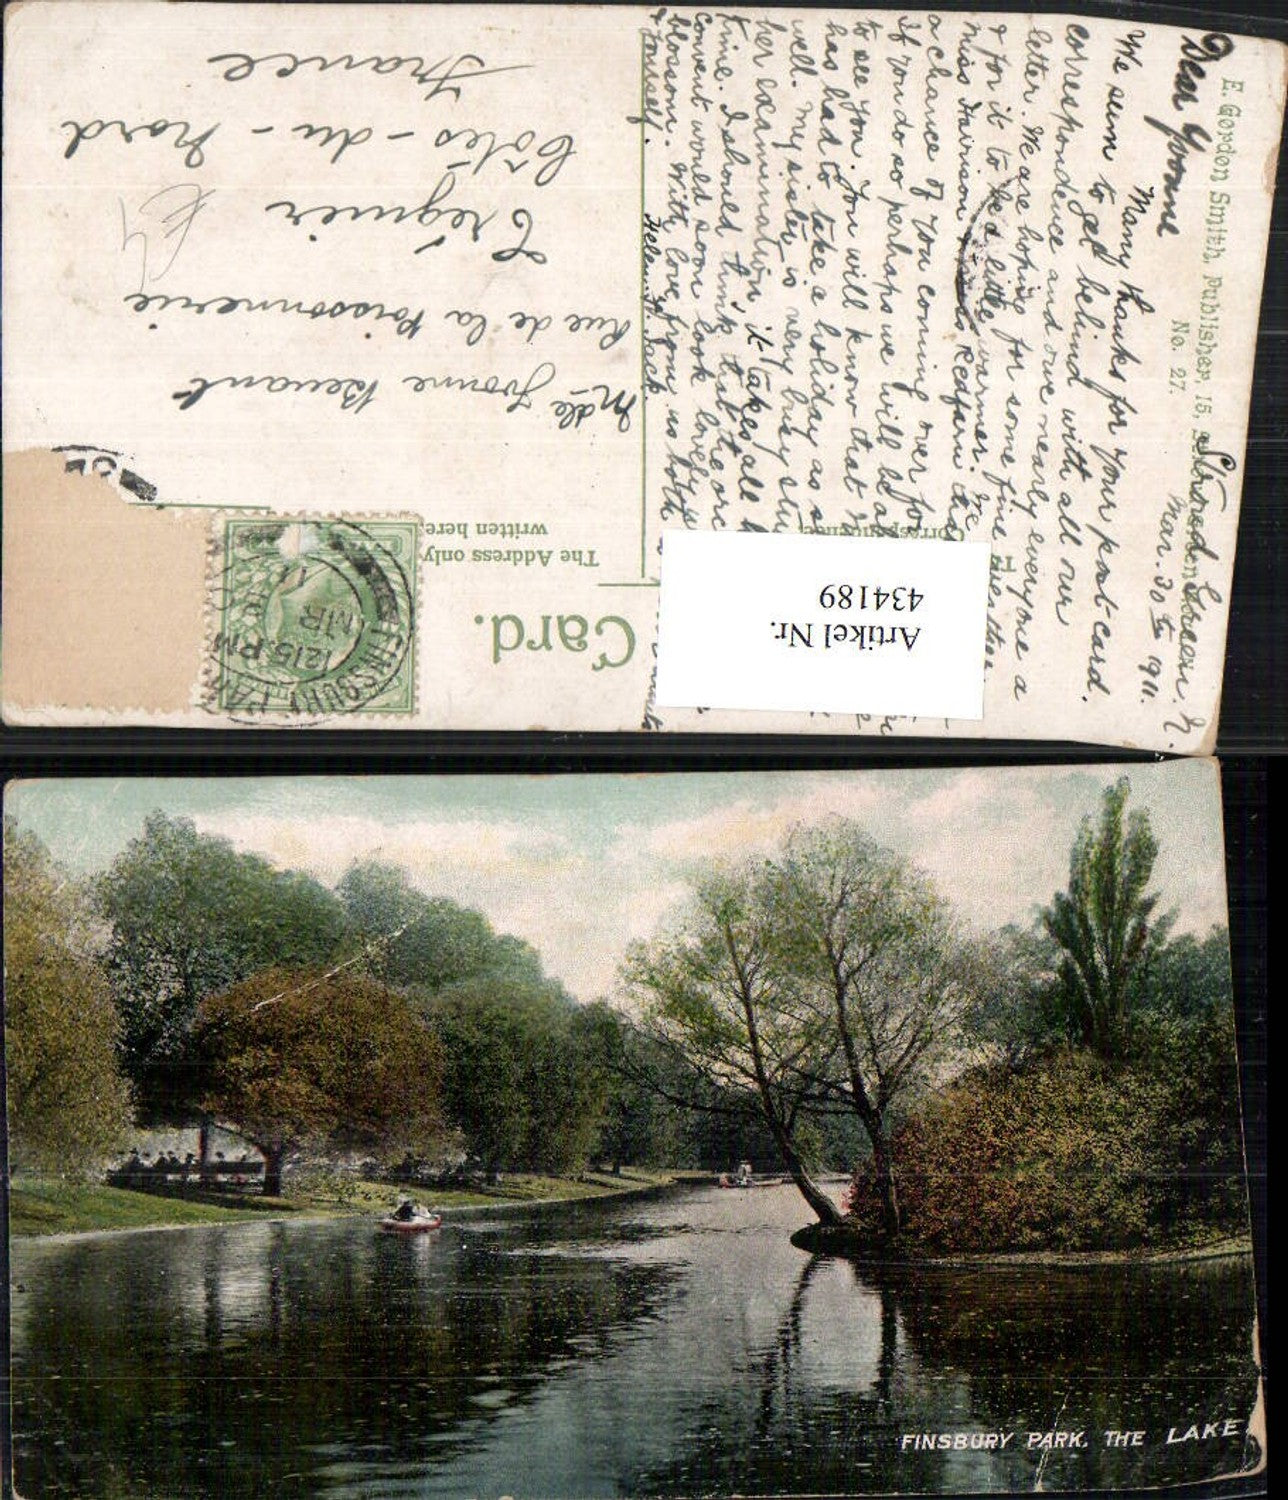 E. Gordon Smith, Publisher, 15,
No. 27.
Stroud Green. N.
Mar. 30th 1911.
Dear Yvonne
Many thanks for your post-card.
We seem to get behind with all our
correspondence and owe nearly everyone a
letter. We are hoping for some fine weather
& for it to be a little warmer.
Miss Davison
a chance of you coming over for
If you do so perhaps we will be a
to see you. You will know that
has had to take a holiday as s
well. My sister is very busy stu
her examination, it takes all h
time. I should think that the orc
convent would soon look lovely
blossom. With love from us both
& yourself.
Helen W. Jack.
Card.
Correspondence.
The Address only
written here.
FINSBURY PARK
12.15 PM
MR
Mdle Yvonne Benant
Rue de la Poissonnerie
Tréguier
Côtes-du-Nord
France
Artikel Nr.
434189
FINSBURY PARK, THE LAKE